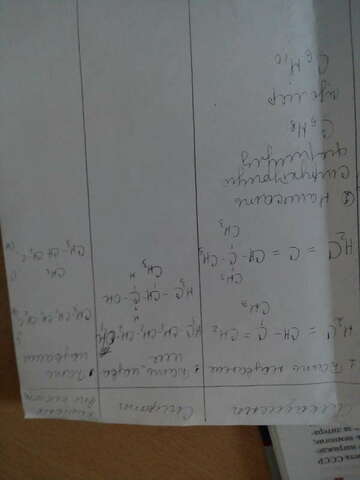 сть СССР
награжде-
немногие,
за литера-
Алкадиены
Спирты
1 Дать название
Дать назва
ние
Дать
название
H₂C = CH - C = CH₂
CH₃
H₃C-CH₂-CH₂-CH₂-OH
H
H₃C - CH - C - OH
CH₃ H
CH₃
H₂C = C = CH - C - CH₃
CH₃
CH₃
CH₃ - CH
2 Написать
структурную
формулу
C₅H₈
изомер
C₆H₁₀